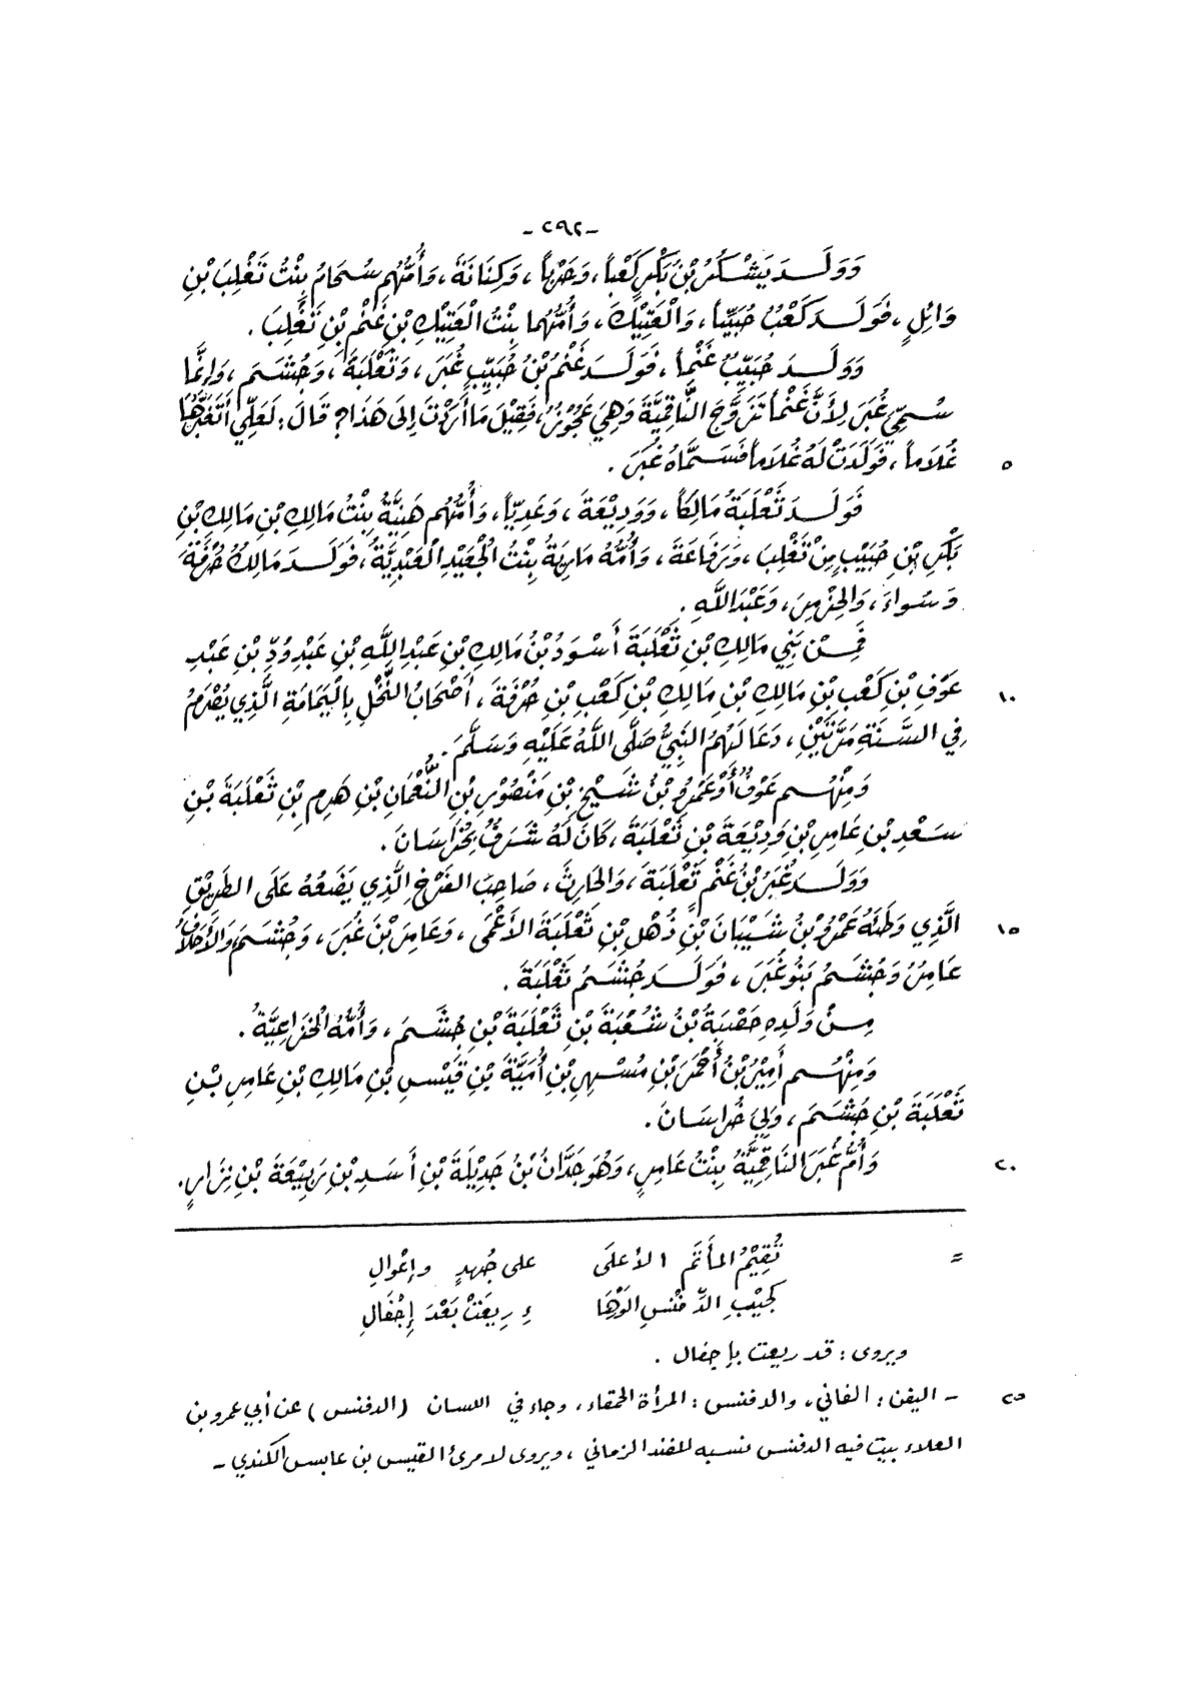 -٢٩٢-
وَوَلَدَ يَشْكُرُ بْنُ بَكْرٍ كَعْباً، وَحَرْباً، وَكِنَانَةَ، وَأُمُّهُم سُحَامُ بِنْتُ تَغْلِبَ بْنِ
وَائِلٍ، فَوَلَدَ كَعْبُ حُبَيِّباً، وَالْعَتِيْكَ، وَأُمُّهُما بِنْتُ الْعَتِيْكِ بْنِ غَنْمِ بْنِ تَغْلِبَ.
وَوَلَدَ حُبَيِّبُ غَنْماً، فَوَلَدَ غَنْمُ بْنُ حُبَيِّبٍ غُبَرَ، وَثَعْلَبَةَ، وَجُشَمَ، وَإِنَّمَا
سُمِّيَ غُبَرَ لِأَنَّ غَنْماً تَزَوَّجَ النَّاقِمِيَّةَ وَهِيَ عَجُوْزٌ، فَقِيْلَ مَا أَرَدْتَ إِلَى هَذَا؟ قَالَ: لَعَلِّي أَتَغَبَّرُهَا
٥ غُلَاماً، فَوَلَدَتْ لَهُ غُلَاماً فَسَمَّاهُ غُبَرَ.
فَوَلَدَ ثَعْلَبَةُ مَالِكاً، وَوَدِيْعَةَ، وَعَدِيّاً، وَأُمُّهُم هَنِيَّةُ بِنْتُ مَالِكِ بْنِ مَالِكِ بْنِ
بَكْرِ بْنِ حُبَيْبٍ مِنْ تَغْلِبَ، وَرَفَاعَةَ، وَأُمُّهُ مَارِيَةُ بِنْتُ الْجُعَيْدِ الْعَبْدِيَّةُ، فَوَلَدَ مَالِكُ حُرْفَةَ
وَسُواءَ، وَالحِزْمِرَ، وَعَبْدَ اللَّهِ.
فَمِنْ بَنِي مَالِكِ بْنِ ثَعْلَبَةَ أَسْوَدُ بْنُ مَالِكِ بْنِ عَبْدِ اللَّهِ بْنِ عَبْدِ وُدِّ بْنِ عَبْدِ
١٠ عَوْفِ بْنِ كَعْبِ بْنِ مَالِكِ بْنِ مَالِكِ بْنِ كَعْبِ بْنِ حُرْفَةَ، أَصْحَابُ النَّخْلِ بِالْيَمَامَةِ الَّذِي يُصْرَمُ
فِي السَّنَةِ مَرَّتَيْنِ، دَعَا لَهُمُ النَّبِيُّ صَلَّى اللَّهُ عَلَيْهِ وَسَلَّمَ.
وَمِنْهُم عَوْفُ أَوْ عَمْرُو بْنُ شَيْخِ بْنِ مَنْصُوْرِ بْنِ النُّعْمَانِ بْنِ هَرِمِ بْنِ ثَعْلَبَةَ بْنِ
سَعْدِ بْنِ عَامِرِ بْنِ وَدِيْعَةَ بْنِ ثَعْلَبَةَ، كَانَ لَهُ شَرَفٌ بِخُرَاسَانَ.
وَوَلَدَ غُبَرُ بْنُ غَنْمٍ ثَعْلَبَةَ، وَالحَارِثَ، صَاحِبَ الفَرْخِ الَّذِي يَضَعُهُ عَلَى الطَرِيْقِ
١٥ الَّذِي وَطِئَهُ عَمْرُو بْنُ شَيْبَانَ بْنِ ذُهْلِ بْنِ ثَعْلَبَةَ الأَعْمَى، وَعَامِرَ بْنَ غُبَرَ، وَجُشَمَ، وَالأَحْلَافُ
عَامِرُ وَجُشَمُ بَنُو غُبَرَ، فَوَلَدَ جُشَمُ ثَعْلَبَةَ.
مِنْ وَلَدِهِ حَصْبَةُ بْنُ شُعْبَةَ بْنِ ثَعْلَبَةَ بْنِ جُشَمَ، وَأُمُّهُ الْخُزَاعِيَّةُ.
وَمِنْهُم أَمِيْرُ بْنُ أَحْمَرَ بْنِ مُسْهِرِ بْنِ أُمَيَّةَ بْنِ قَيْسِ بْنِ مَالِكِ بْنِ عَامِرِ بْنِ
ثَعْلَبَةَ بْنِ جُشَمَ، وَلِيَ خُرَاسَانَ.
٢٠ وَأُمُّ غُبَرَ النَاقِمِيَّةُ بِنْتُ عَامِرٍ، وَهُوَ جَدَّانُ بْنُ جَدِيْلَةَ بْنِ أَسَدِ بْنِ رَبِيْعَةَ بْنِ نِزَارٍ.
= تُقِيْمُ المَأْتَمَ الأعلَى على جُهدٍ وإعْوالِ
كَجَيْبِ الدِّفْنِسِ الوَرْهَا ءِ رِيعَتْ بَعْدَ إِجْفَالِ
ويروى: قد ريعت بإجفال.
٢٥ - اليفن: الفاني، والدفنس: المرأة الحمقاء، وجاء في اللسان (الدفنس) عن أبي عمرو بن
العلاء بيت فيه الدفنس نسبه للفند الزماني، ويروى لامرئ القيس بن عابس الكندي -